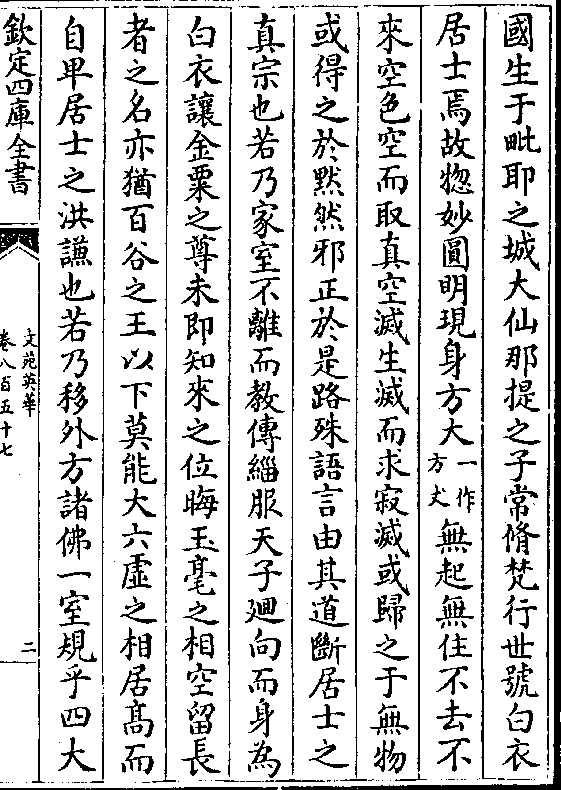 國生于毗耶之城大仙那提之子常脩梵行世號白衣
居士焉故惣妙圓明現身方大一作方丈無起無住不去不
來空色空而取真空滅生滅而求寂滅或歸之于無物
或得之於默然邪正於是路殊語言由其道斷居士之
真宗也若乃家室不離而教傳緇服天子廻向而身為
白衣讓金粟之尊未即知來之位晦玉毫之相空留長
者之名亦猶百谷之王以下莫能大六虛之相居髙而
自卑居士之洪謙也若乃移外方諸佛一室規乎四大
欽定四庫全書
文苑英華
卷八百五十七
二